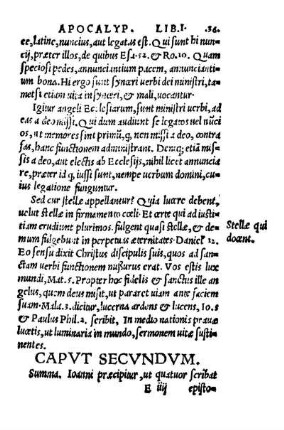 APOCALYP. LIB. I. 34.
ce, latine, nuncius, aut legatus est. Qui sunt hi nun-
cij, præter illos, de quibus Esa. 52. & Ro. 10. Quam
speciosi pedes, annunciantium pacem, annunciantiũ
bona. Hi ergo sunt synceri uerbi dei ministri, ta-
metsi etiam uitæ insynceri, & mali, uocantur.
Igitur angeli Ecclesiarum, sunt ministri uerbi, ad
eas a deo missi. Qui dum audiunt se legatos uel nũci
os, ut memores sint primũ, q, non missi a deo, contra
fas, hanc functionem administrant. Denq; etiã mis-
sis a deo, aut electis ab Ecclesijs, nihil licet annuncia
re, præter id q, iussi sunt, nempe uerbum domini, cu-
ius legatione funguntur.
Sed cur stellæ appellantur? Quia lucere debent,
uelut stellæ in firmamento cœli. Et certe qui ad iusti-
tiam erudiunt plurimos, fulgent quasi stellæ, & de-
mum fulgebunt in perpetuas æternitates. Daniel 12.
Eo sensu dixit Christus discipulis suis, quos ad san-
ctam uerbi functionem missurus erat. Vos estis lux
mundi, Mat. 5. Propter hoc fidelis & sanctus ille an
gelus, quem deus misit, ut pararet uiam ante faciem
suam. Mala. 3. dicitur, lucerna ardens & lucens, Io. 5
& Paulus Phil. 2. scribit, In medio nationis prauæ
lucetis, ut luminaria in mundo, sermonem uitæ susti-
nentes.
Stellæ qui
doceant.
CAPVT SECVNDVM.
Summa. Ioanni præcipitur, ut quatuor scribat
E iiij episto-